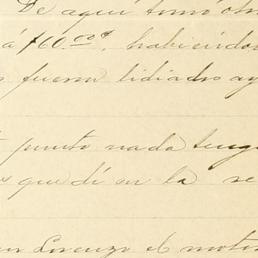 De aquí tomó otr
á $60.00 habiendo
s fueron lidiados ay
punto nada teng
s que dí en la re
en Lorenzo el moti